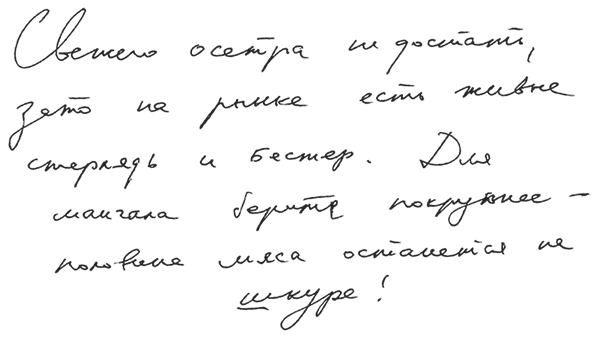 Свежего осетра не достать,
зато на рынке есть живые
стерлядь и бестер. Для
мангала берите покрупнее –
половина мяса останется на
шкуре!